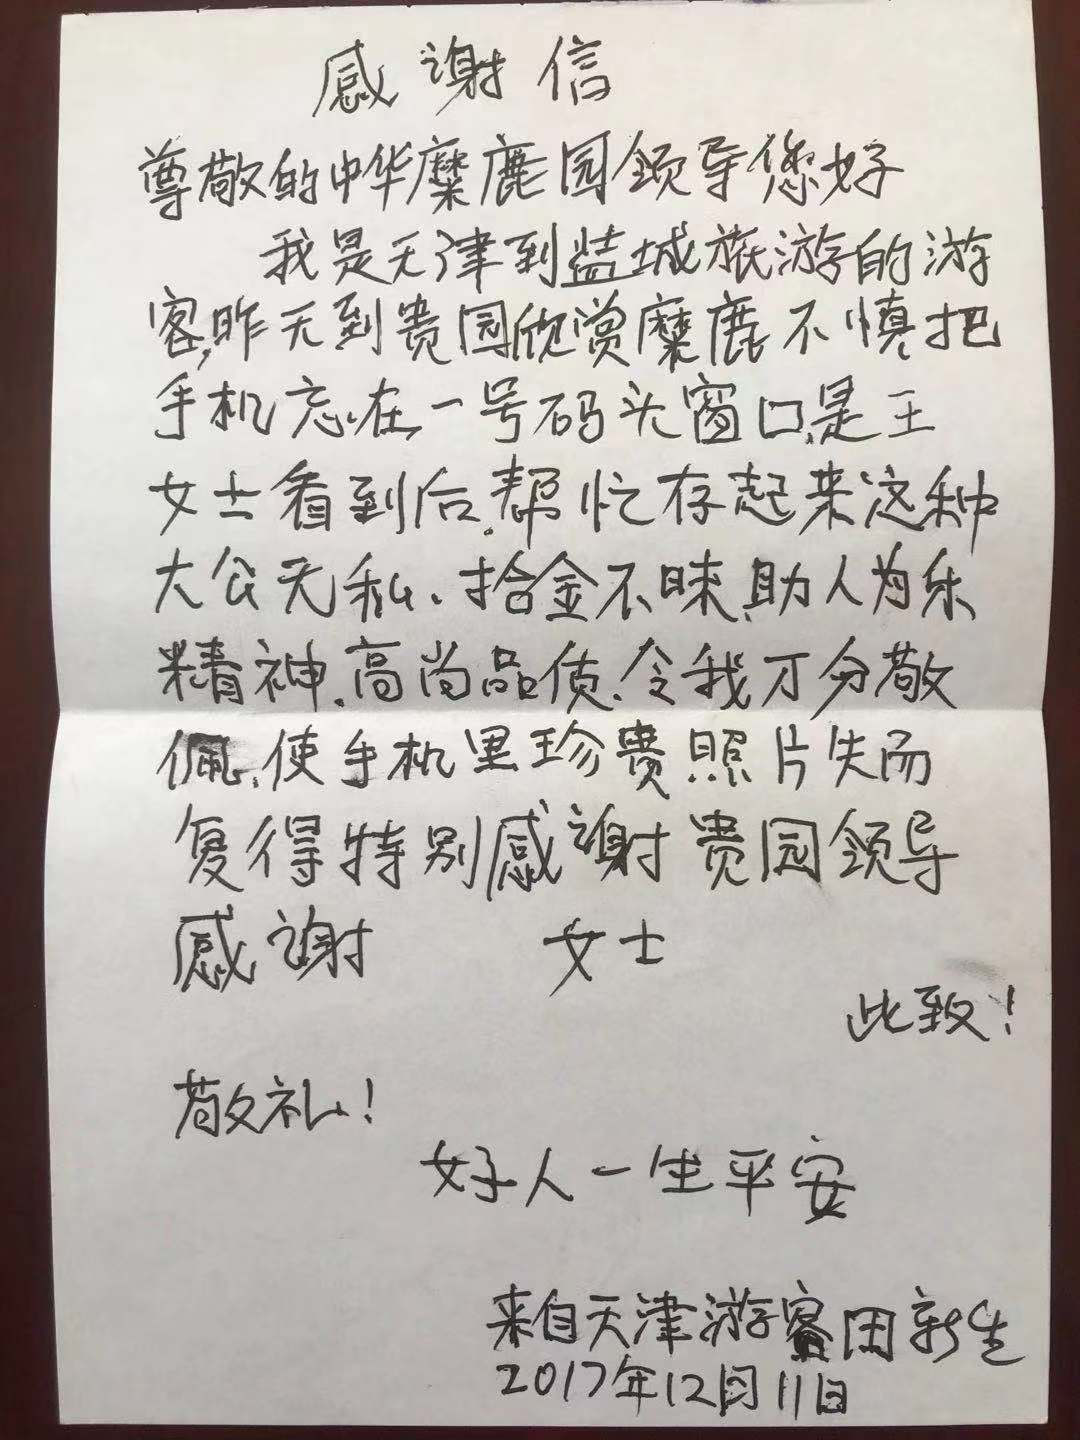 感谢信
尊敬的中华麋鹿园领导您好
我是天津到盐城旅游的游
客,昨天到贵园欣赏麋鹿不慎把
手机忘在一号码头窗口,是王
女士看到后,帮忙存起来这种
大公无私、拾金不昧,助人为乐
精神,高尚品质,令我万分敬
佩,使手机里珍贵照片失而
复得特别感谢贵园领导
感谢 女士
此致!
敬礼!
好人一生平安
来自天津游客田新生
2017年12月11日